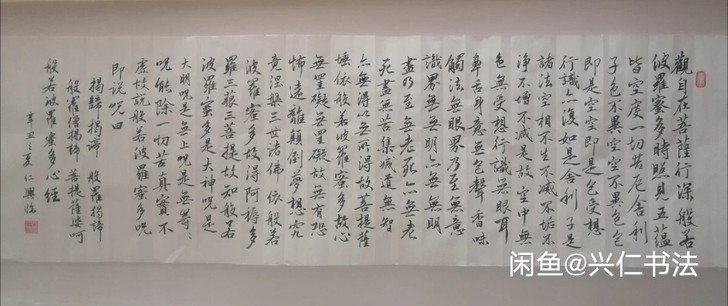 觀自在菩薩行深般若
波羅蜜多時照見五蘊
皆空度一切苦厄舍利
子色不異空空不異色色
即是空空即是色受想
行識亦復如是舍利子是
諸法空相不生不滅不垢不
淨不增不減是故空中無
色無受想行識無眼耳
鼻舌身意無色聲香味
觸法無眼界乃至無意
識界無無明亦無無明
盡乃至無老死亦無老
死盡無苦集滅道無智
亦無得以無所得故菩提薩
埵依般若波羅蜜多故心
無罣礙無罣礙故無有恐
怖遠離顛倒夢想究
竟涅槃三世諸佛依般若
波羅蜜多故得阿耨多
羅三藐三菩提故知般若
波羅蜜多是大神呪是
大明呪是無上呪是無等:
呪能除一切苦真實不
虛故說般若波羅蜜多呪
即說呪曰
揭諦揭諦 般羅揭諦
般羅僧揭諦 菩提薩婆呵
般若波羅蜜多心經
辛丑之夏仁興臨
闲鱼@兴仁书法